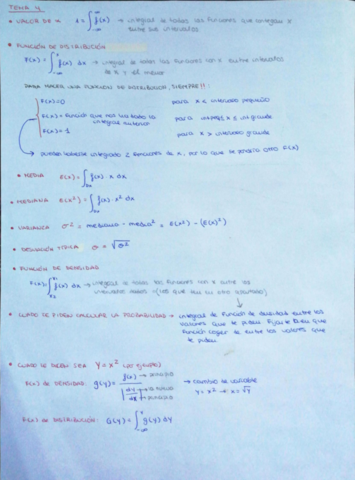 TEMA 4
• VALOR DE K 1 = ∫ f(x) → integral de todas las funciones que contengan x
entre los intervalos
• FUNCIÓN DE DISTRIBUCIÓN
F(x) = ∫ f(x) dx → integral de todas las funciones con x entre intervalos
de x y el menor
PARA HACER UNA FUNCIÓN DE DISTRIBUCIÓN, SIEMPRE!!:
F(x)=0 para x < intervalo pequeño
F(x) = función que nos ha dado la para ≤ intervalo grande
integral anterior
F(x)=1 para x > intervalo grande
puedes haberte integrado 2 funciones de x, por lo que se pondría otro F(x)
• MEDIA E(x) = ∫ f(x) · x dx
• MEDIANA E(x²) = ∫ f(x) · x² dx
• VARIANZA σ² = mediana - media² = E(x²) - (E(x)²)
• DESVIACIÓN TÍPICA σ = √σ²
• FUNCIÓN DE DENSIDAD
F(x) = ∫ f(x) dx → integral de todas las funciones con x entre los
intervalos
• CUANDO TE PIDEN CALCULAR LA PROBABILIDAD → integral de función de densidad entre los
valores que te piden. Fíjate bien que
función coger entre los valores que
te piden
• CUANDO TE DICEN SEA Y = x² (por ejemplo)
F(x) DE DENSIDAD: g(y) = f(x) → cambio de variable
dy
dx
y = x² → x = √y
F(x) DE DISTRIBUCIÓN: G(y) = ∫ g(y) dy